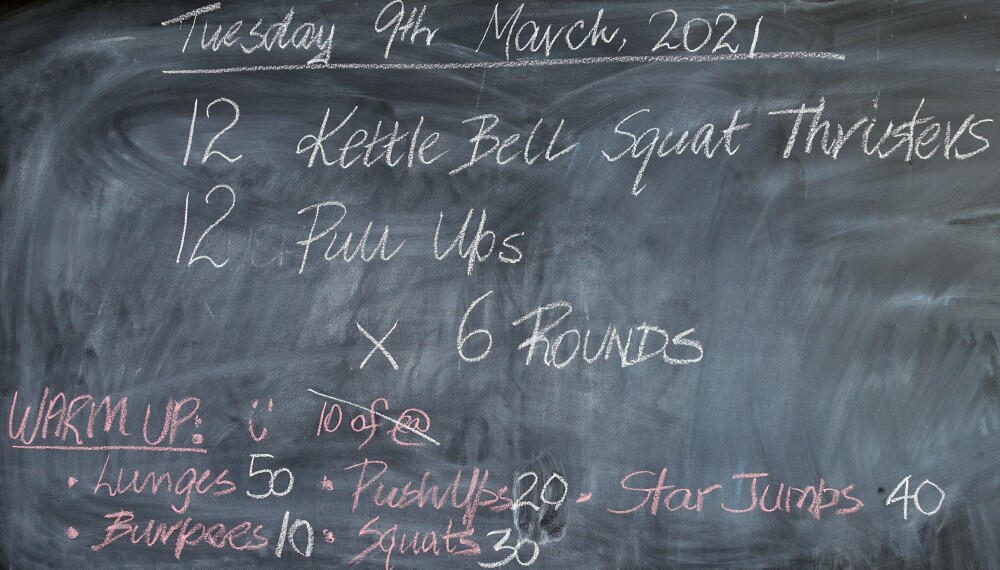 Tuesday 9th March, 2021
12 Kettle Bell Squat Thrusters
12 Pull Ups
x 6 ROUNDS
WARM UP: ü 10 of @
• Lunges 50 • Push Ups 20 • Star Jumps 40
• Burpees 10 • Squats 30